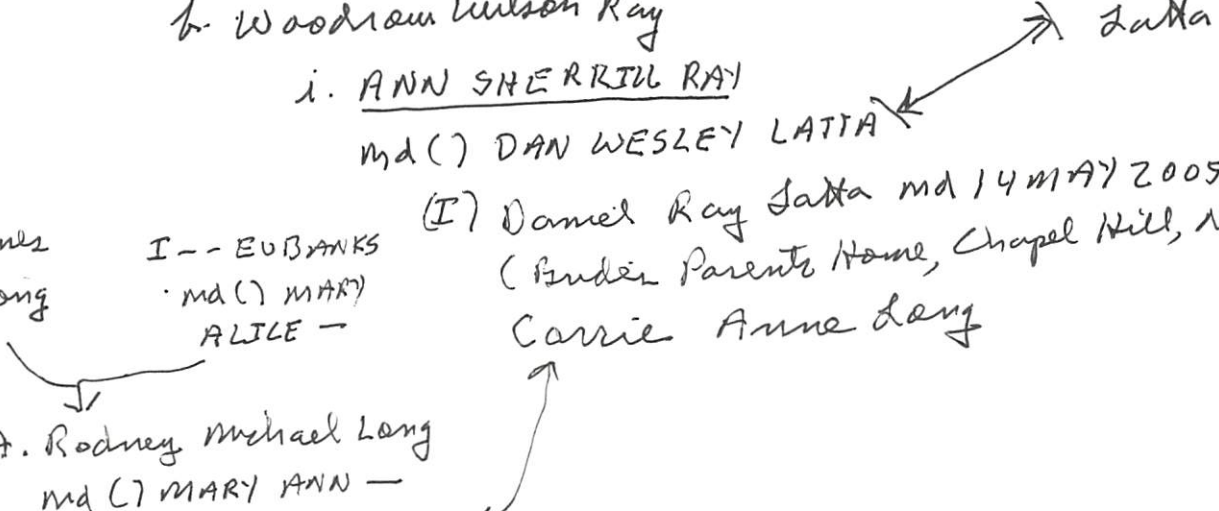 b. Woodrow Wilson Ray
Latta
i. ANN SHERRILL RAY
md () DAN WESLEY LATTA
(I) Daniel Ray Latta md 14 MAY 2005
(Brides Parents Home, Chapel Hill, N
Carrie Anne Long
I -- EUBANKS
md () MARY
ALICE —
ong
A. Rodney Michael Long
md () MARY ANN —